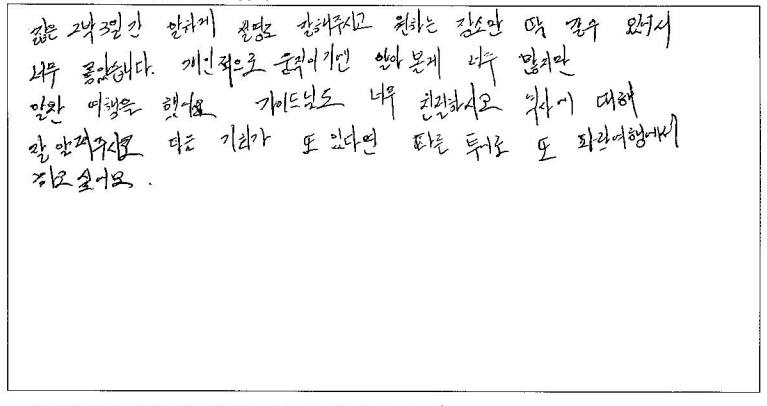 짧은 2박3일간 알차게 설명도 잘해주시고 원하는 장소만 딱 갈수 있어서
너무 좋았습니다. 개인적으로 움직이기엔 알아 볼게 너무 많지만
알찬 여행을 했어요 가이드님도 너무 친절하시고 역사에 대해
잘 알려주시고 다음 기회가 또 있다면 다른 투어로 또 파란여행에서
하고 싶어요.